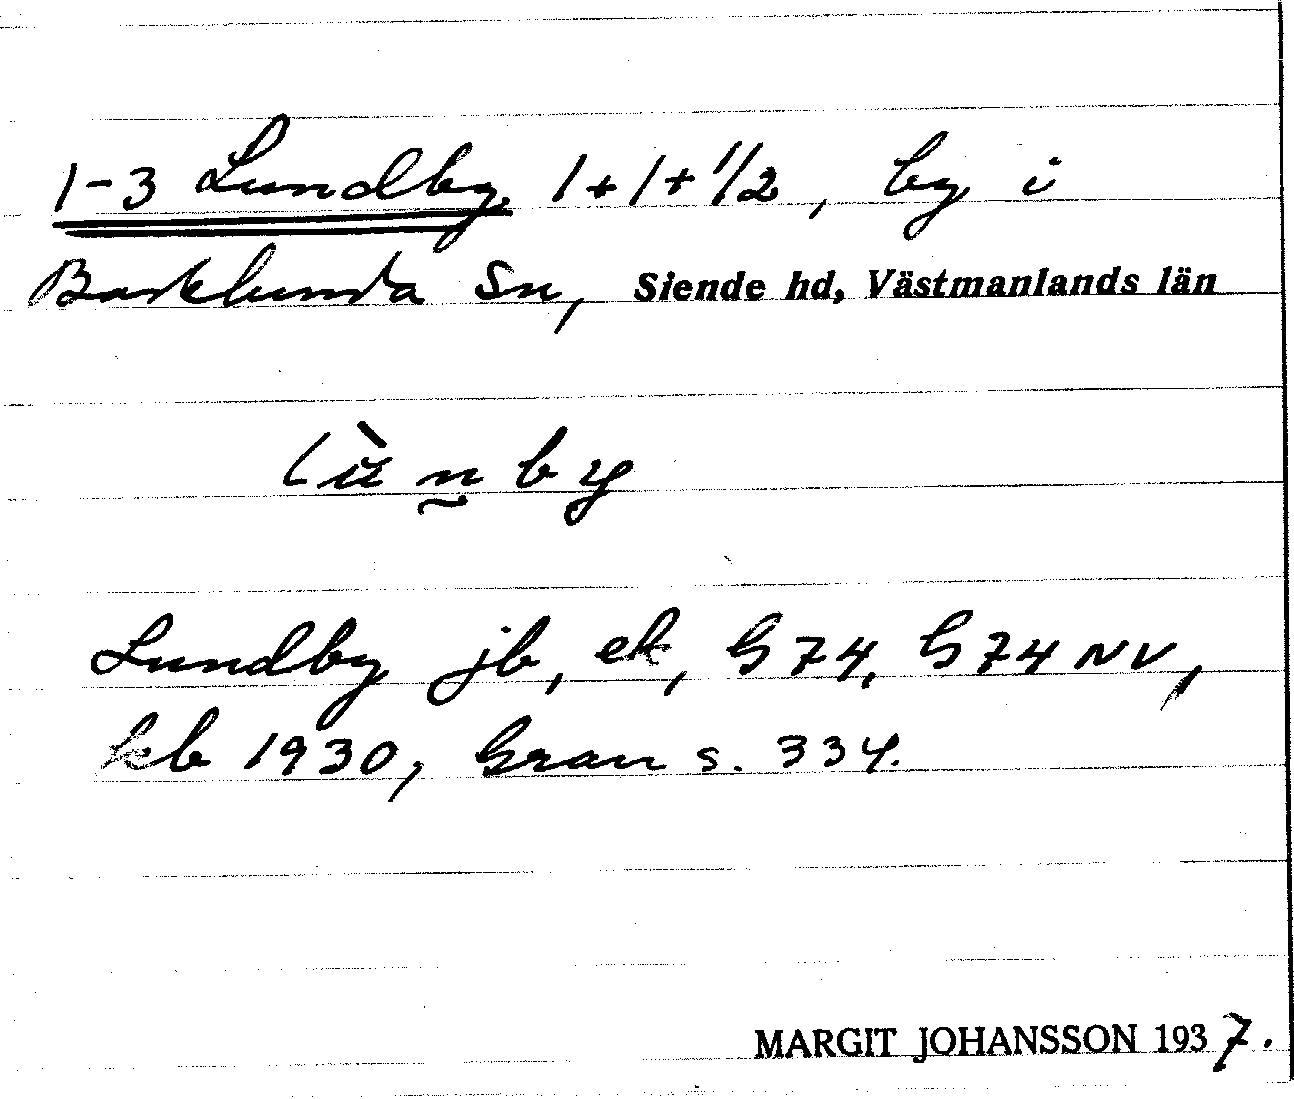 1-3 Lundby 1+1+1/2, by i
Barklunda Sn, Siende hd, Västmanlands län
lù̆n̰by
Lundby jb, ek, G74, G74 NV,
kb 1930, Grau s. 334.
MARGIT JOHANSSON 1937.